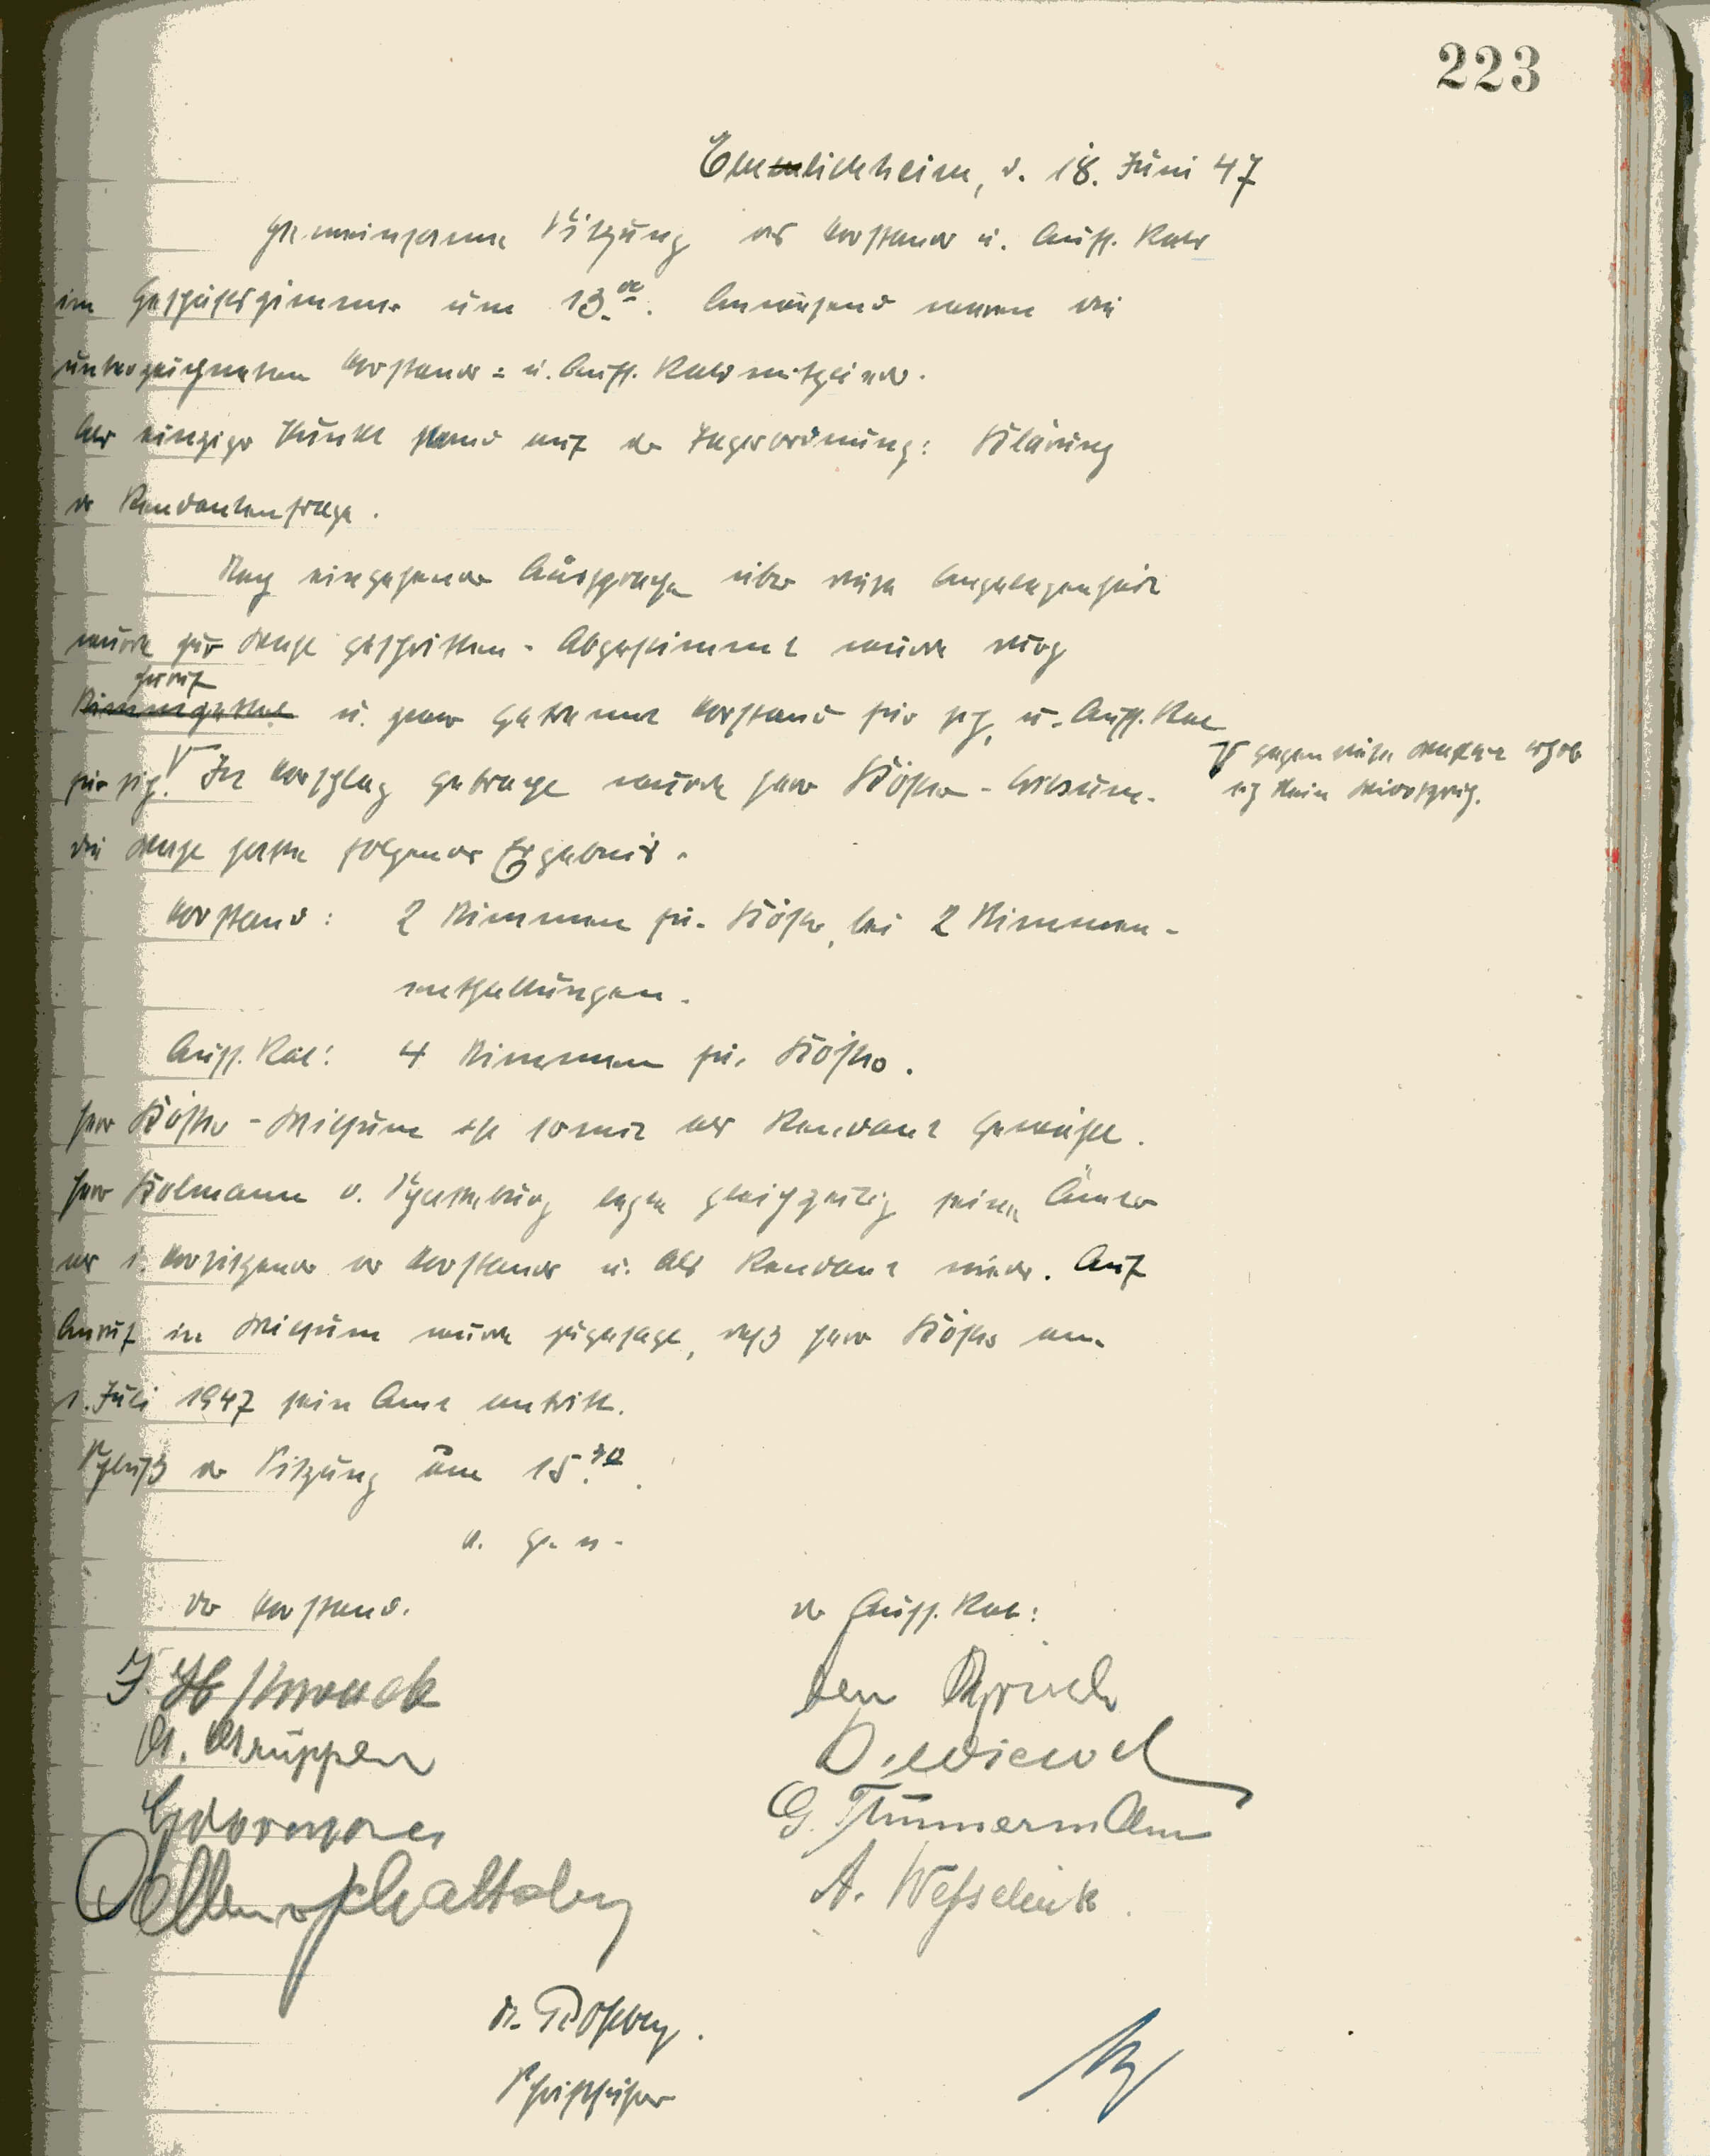 223
Emmlichheim, d. 18. Juni 47
Gemeinsame Sitzung des Vorstands u. Aufs. Rats
im Geschäftszimmer um 13.00. Anwesend waren die
unterzeichneten Vorstands- u. Aufs. Ratsmitglieder.
Als einziger Punkt stand auf der Tagesordnung: Klärung
der Rendantenfrage.
Nach eingehender Aussprache über diese Angelegenheit
wurde zur Wahl geschritten. Abgestimmt wurde durch
Zuruf
u. zwar getrennt Vorstand für sich, u. Aufs. Rat
für sich. In Vorschlag gebracht wurde Herr Köster-
gegen diese Wahlart erhob
sich kein Widerspruch.
Die Wahl hatte folgendes Ergebnis.
Vorstand: 2 Stimmen für Köster, bei 2 Stimmen-
enthaltungen.
Aufs. Rat: 4 Stimmen für Köster.
Herr Köster-Wilsum ist somit als Rendant gewählt.
Herr Kolmann v. Schatteburg legte gleichzeitig seine Ämter
als 1. Vorsitzender des Vorstands u. als Rendant nieder. Auf
Anruf in Wilsum wurde zugesagt, daß Herr Köster am
1. Juli 1947 sein Amt antritt.
Schluß der Sitzung um 15.30.
v. g. u.
Der Vorstand.
Der Aufs. Rat:
D. Wiewel
G. Timmermann
A. Wesselink
Schriftführer